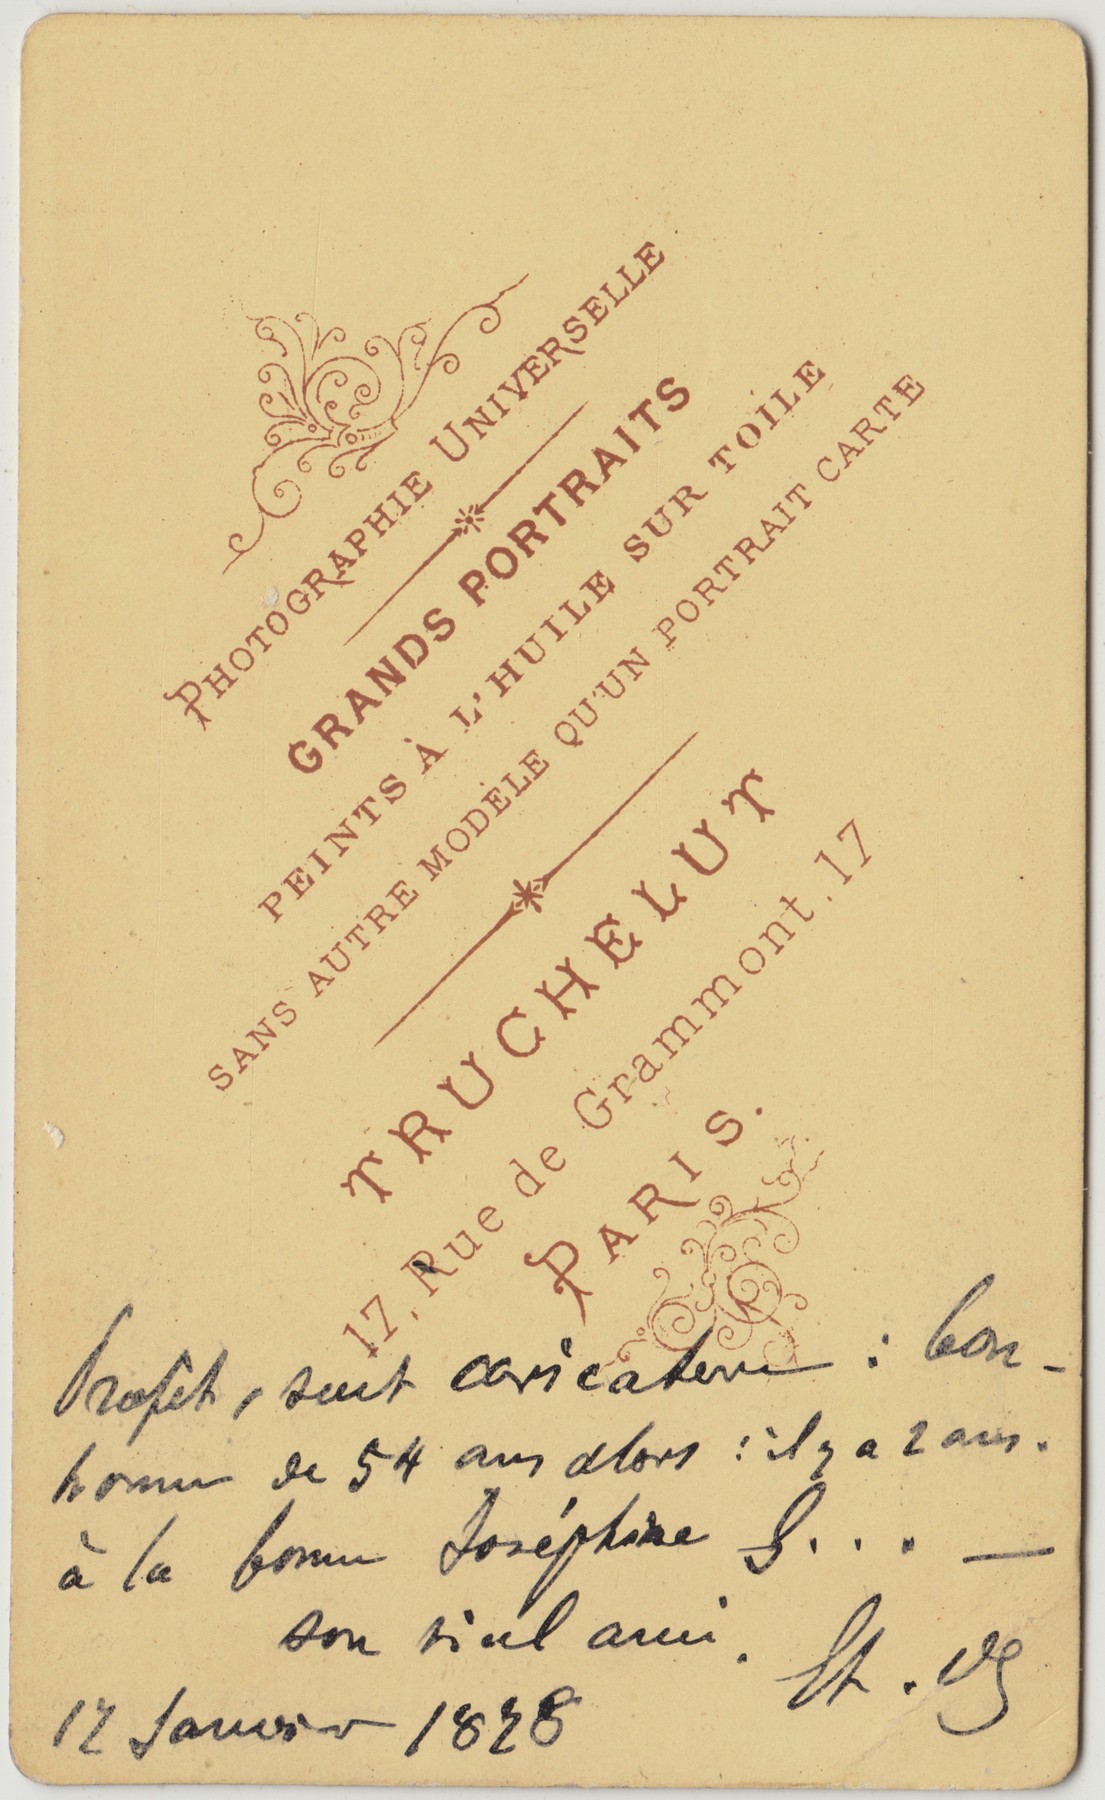 PHOTOGRAPHIE UNIVERSELLE
GRANDS PORTRAITS
PEINTS À L'HUILE SUR TOILE
SANS AUTRE MODÈLE QU'UN PORTRAIT CARTE
TRUCHELUT
17, Rue de Grammont, 17
PARIS.
bon-
homme de 54 ans alors : il y a 2 ans.
à la bonne Joséphine G... —
son vieil ami.
12 Janvier 1878